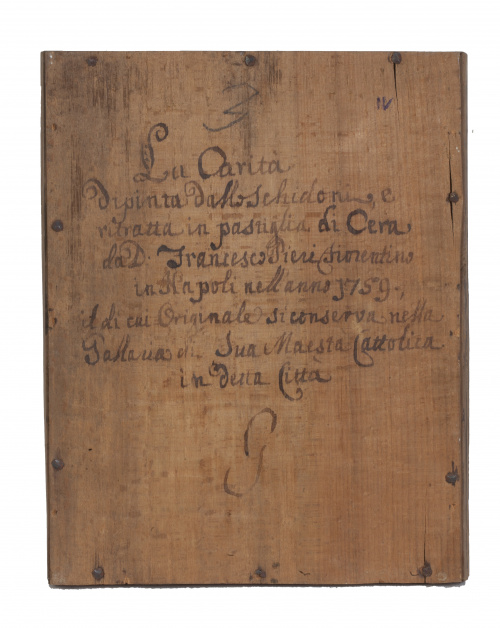 IV
La Carità
dipinta dallo Schidoni, e
ritratta in pastiglia di Cera
da D. Francesco Pieri Fiorentino
in Napoli nell'anno 1759.,
il di cui Originale si conserva nella
Gallaria di Sua Maestà Cattolica
in detta Città
G